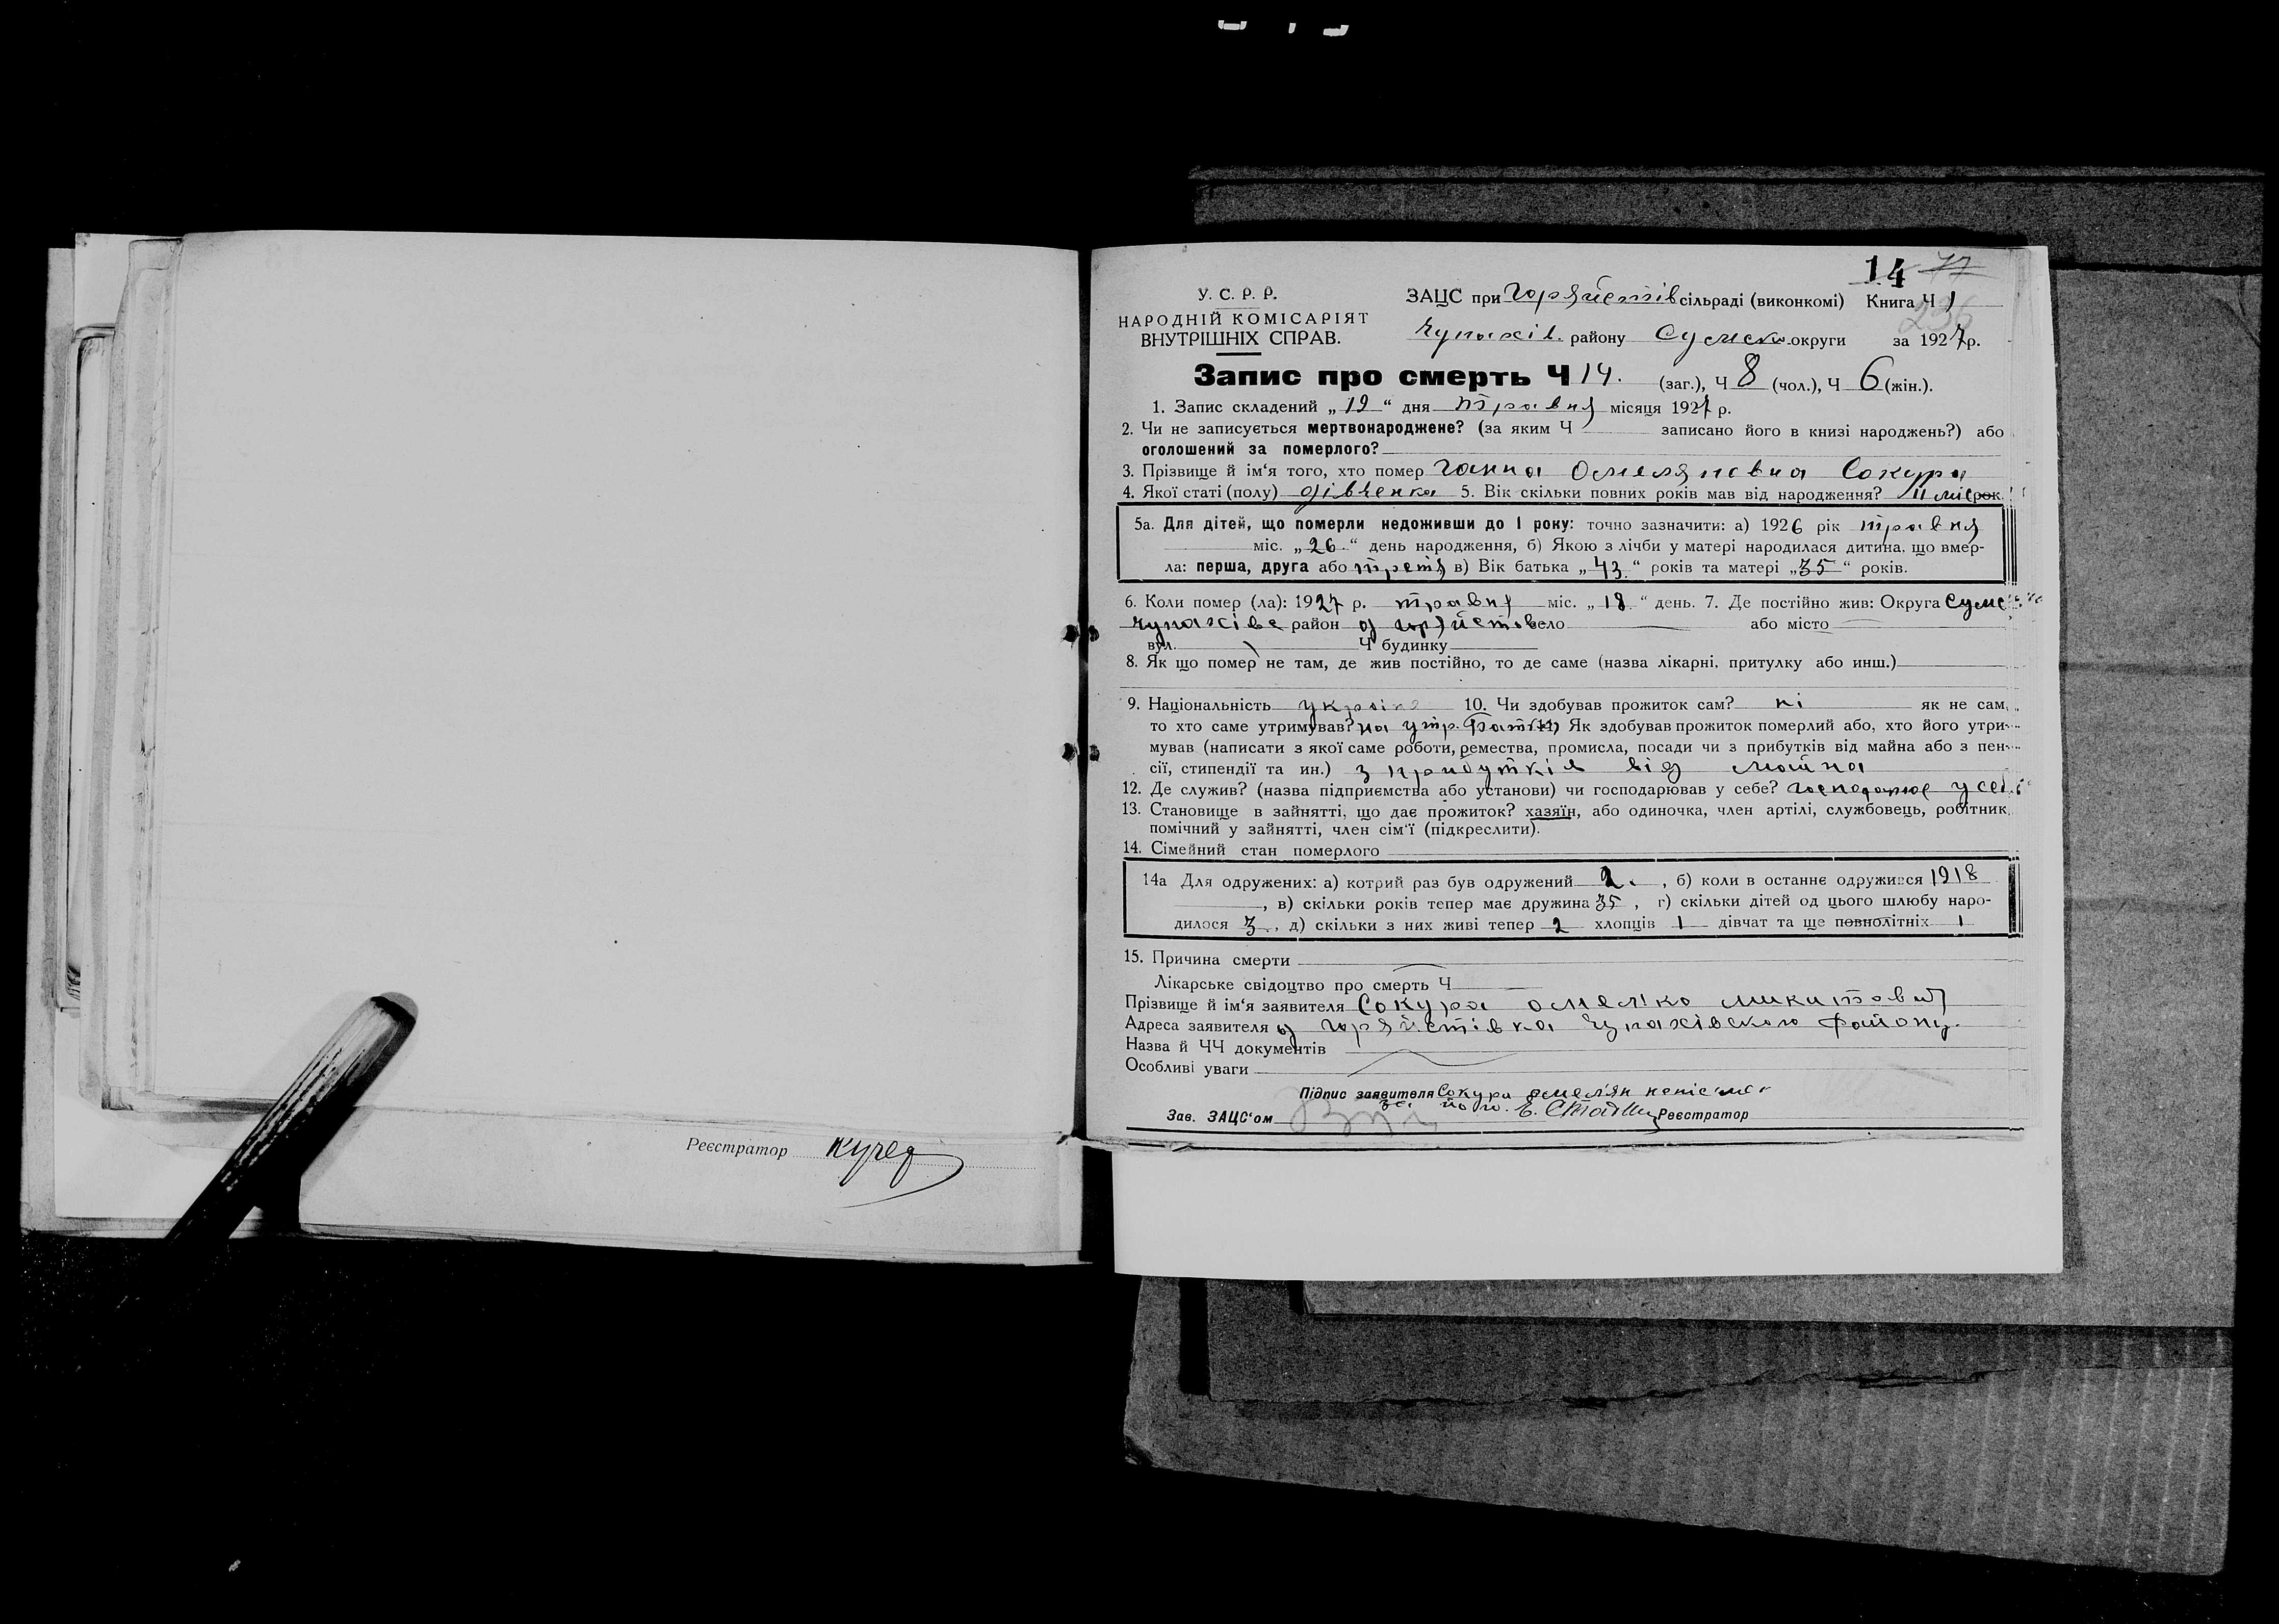 14 77
У. С. Р. Р.
НАРОДНІЙ КОМІСАРІЯТ
ВНУТРІШНІХ СПРАВ.
ЗАЦС при Горяйстів сільраді (виконкомі) Книга Ч 1
236
Чупахів. району Сумско округи за 1927 р.
Запис про смерть Ч 14. (заг.), Ч 8 (чол.), Ч 6 (жін.).
1. Запис складений „19“ дня травня місяця 1927 р.
2. Чи не записується мертвонароджене? (за яким Ч записано його в книзі народжень?) або
оголошений за померлого?
3. Прізвище й ім‘я того, хто помер Ганна Омеляновна Сокура
4. Якої статі (полу) дівченка 5. Вік скільки повних років мав від народження? 11 міс рок.
5а. Для дітей, що померли недоживши до 1 року: точно зазначити: а) 1926 рік травня
міс. „26“ день народження, б) Якою з лічби у матері народилася дитина, що вмер-
ла: перша, друга або третя в) Вік батька „43“ років та матері „35“ років.
6. Коли помер (ла): 1927 р. травня міс. „18“ день. 7. Де постійно жив: Округа Сумс
Чупахівс район д Горяйстов село або місто
вул. Ч будинку
8. Як що помер не там, де жив постійно, то де саме (назва лікарні, притулку або инш.)
9. Національність україн 10. Чи здобував прожиток сам? ні як не сам,
то хто саме утримував? на утр. Батьк 11) Як здобував прожиток померлий або, хто його утри-
мував (написати з якої саме роботи, ремества, промисла, посади чи з прибутків від майна або з пен-
сії, стипендії та ин.) з прибутків від майна
12. Де служив? (назва підприємства або установи) чи господарював у себе? господарює у себе
13. Становище в зайнятті, що дає прожиток? хазяїн, або одиночка, член артілі, службовець, робітник,
помічний у зайнятті, член сім‘ї (підкреслити).
14. Сімейний стан померлого
14а Для одружених: а) котрий раз був одружений 2. , б) коли в останнє одружився 1918
, в) скільки років тепер має дружина 35 , г) скільки дітей од цього шлюбу наро-
дилося 3 , д) скільки з них живі тепер 2 хлопців 1 дівчат та ще повнолітніх 1
15. Причина смерти
Лікарське свідоцтво про смерть Ч
Прізвище й ім‘я заявителя Сокура Омелько Микитович
Адреса заявителя д Горяйстівка Чупахівского району.
Назва й ЧЧ документів
Особливі уваги
Підпис заявителя Сокура Омел'ян
за його. Е.
Зав. ЗАЦС‘ом Реєстратор
Реєстратор Кучер